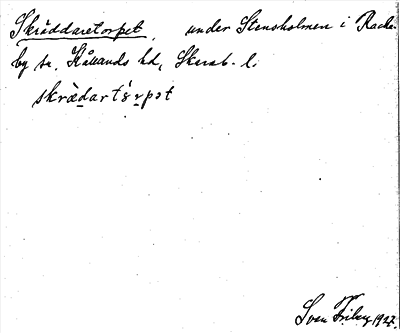 Skräddaretorpet, under Stensholmen i Racke-
by sn. Kållands hd, Skarab. l.
skrädart`s´rpət
Sven Friberg 1927.